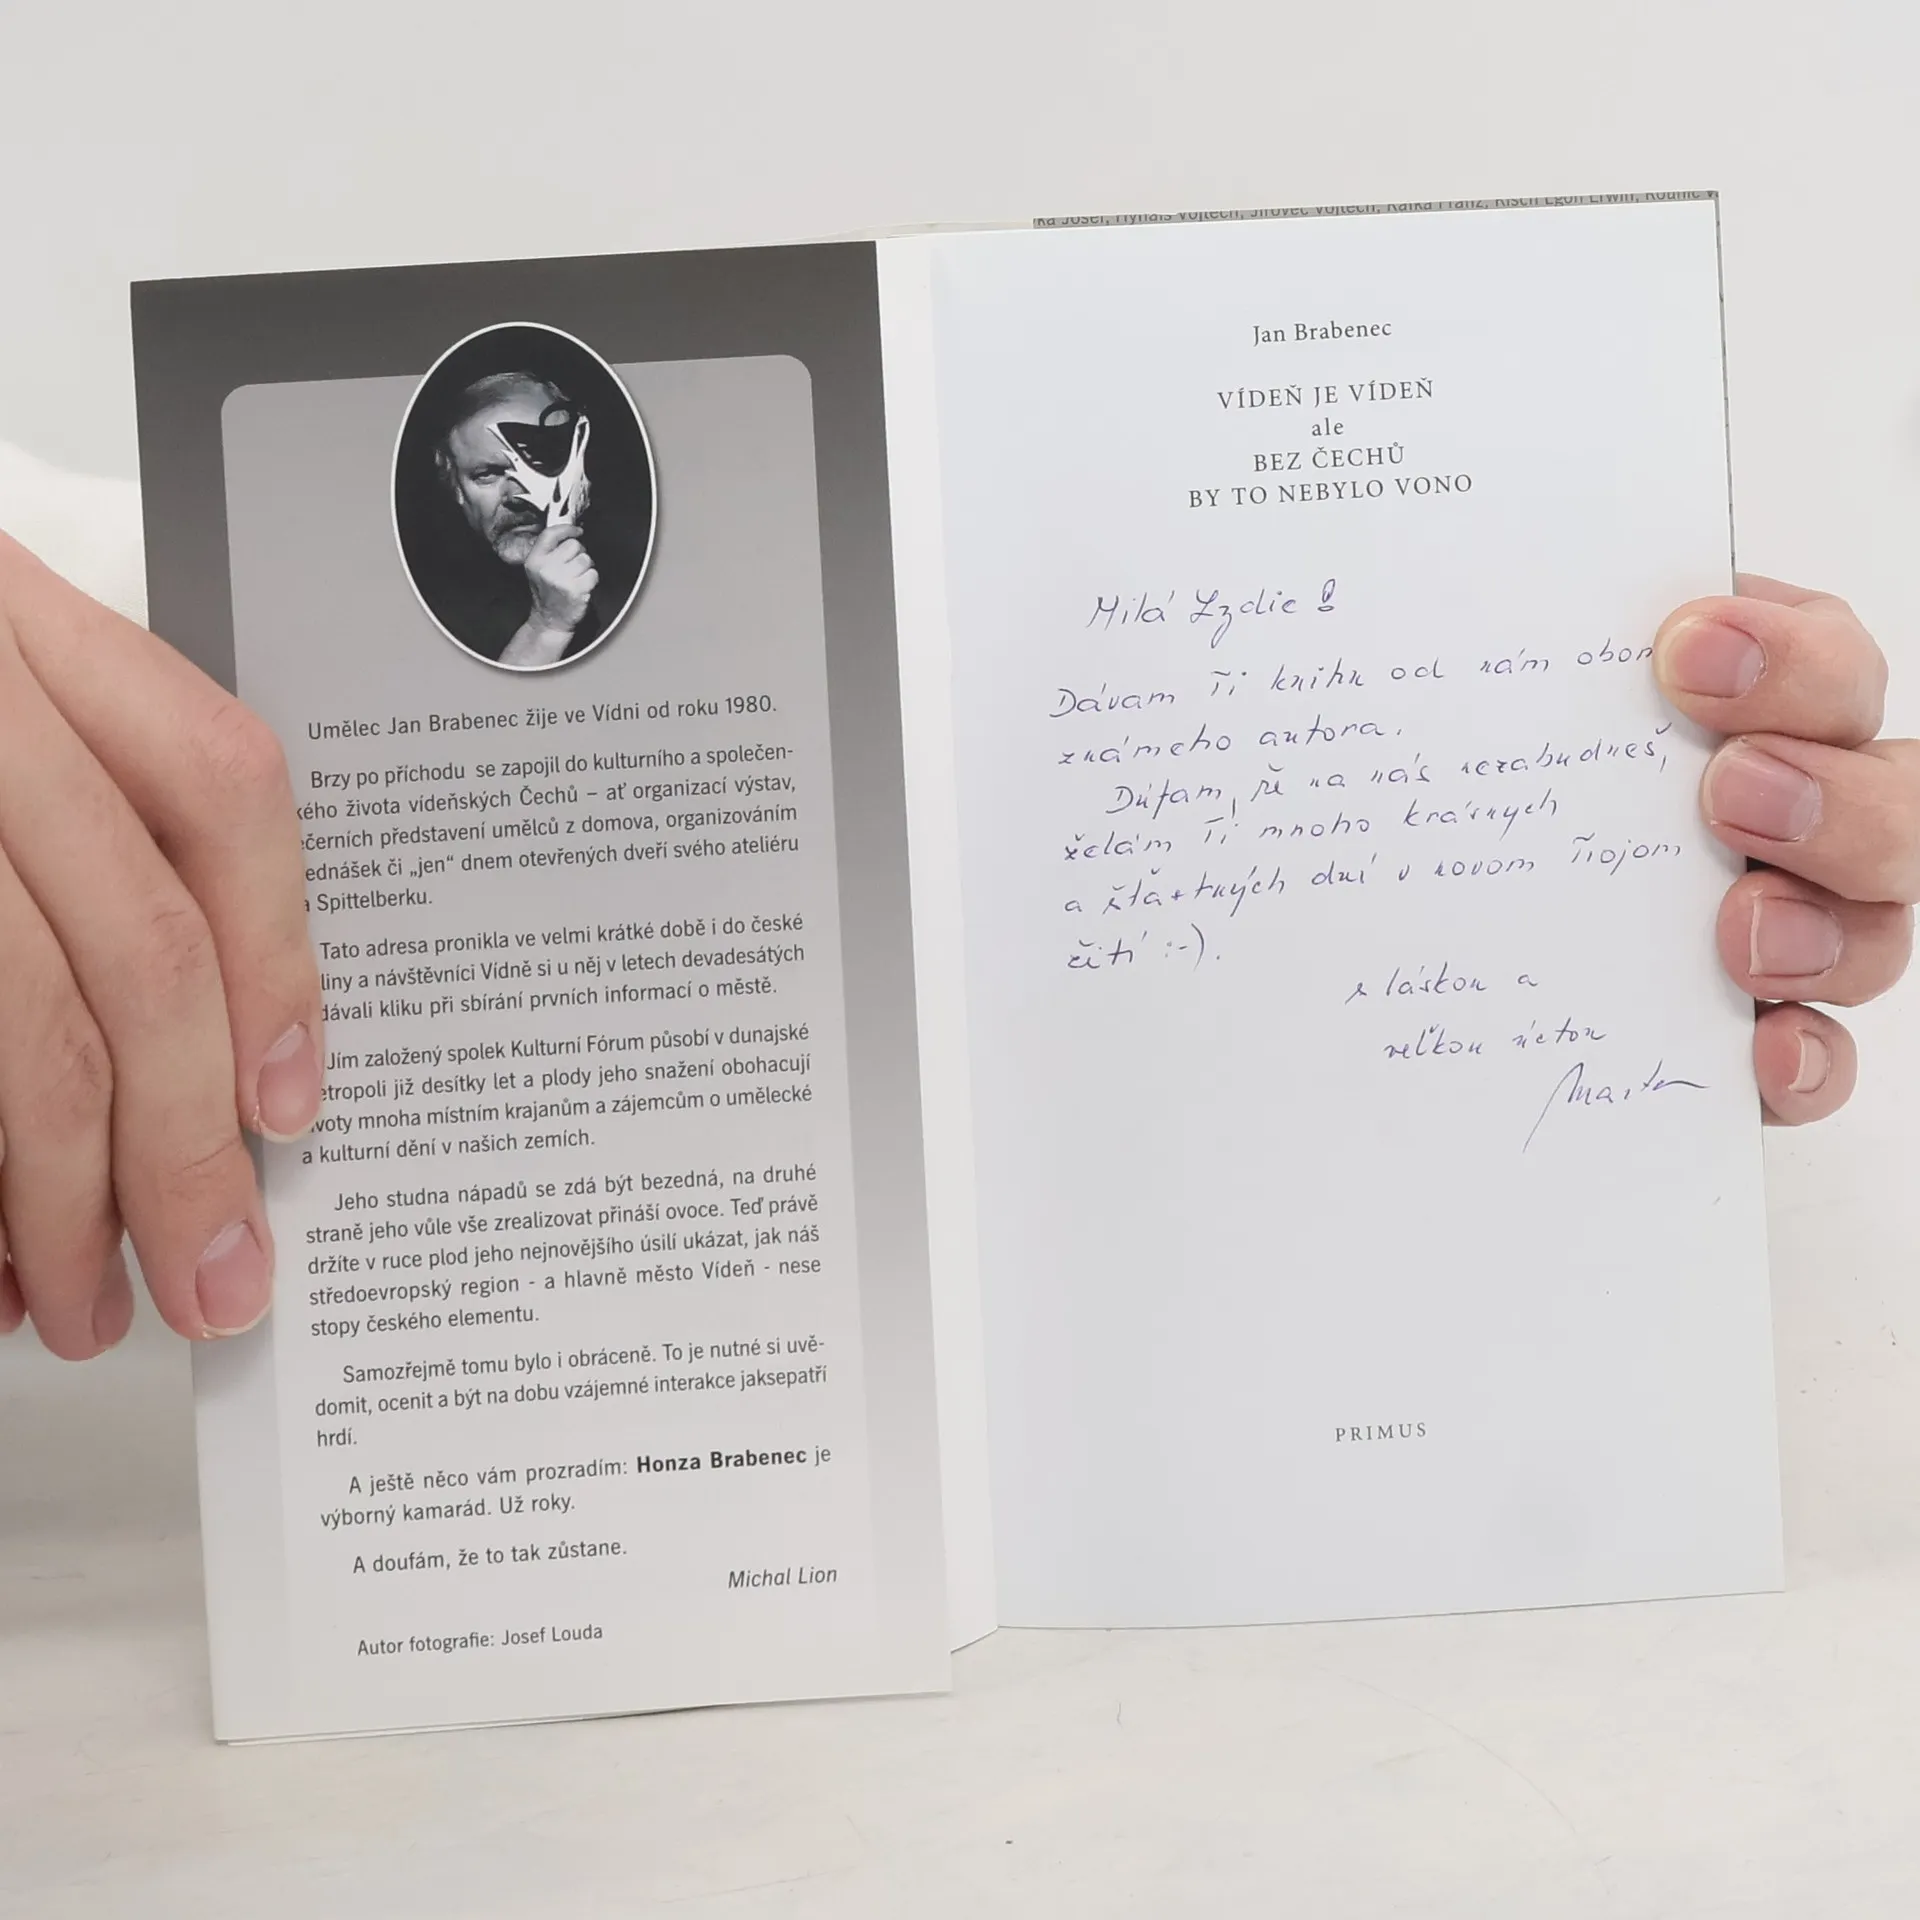 Umělec Jan Brabenec žije ve Vídni od roku 1980.
Brzy po příchodu se zapojil do kulturního a společen-
kého života vídeňských Čechů – ať organizací výstav,
černích představení umělců z domova, organizováním
ednášek či „jen“ dnem otevřených dveří svého ateliéru
a Spittelberku.
Tato adresa pronikla ve velmi krátké době i do české
liny a návštěvníci Vídně si u něj v letech devadesátých
dávali kliku při sbírání prvních informací o městě.
Jím založený spolek Kulturní Fórum působí v dunajské
etropoli již desítky let a plody jeho snažení obohacují
voty mnoha místním krajanům a zájemcům o umělecké
a kulturní dění v našich zemích.
Jeho studna nápadů se zdá být bezedná, na druhé
straně jeho vůle vše zrealizovat přináší ovoce. Teď právě
držíte v ruce plod jeho nejnovějšího úsilí ukázat, jak náš
středoevropský region - a hlavně město Vídeň - nese
stopy českého elementu.
Samozřejmě tomu bylo i obráceně. To je nutné si uvě-
domit, ocenit a být na dobu vzájemné interakce jaksepatří
hrdí.
A ještě něco vám prozradím: Honza Brabenec je
výborný kamarád. Už roky.
A doufám, že to tak zůstane.
Michal Lion
Autor fotografie: Josef Louda
ka Josef, Hynais Vojtěch, Jírovec Vojtěch, Kafka Franz, Kisch Egon Erwin, Kounic V
Jan Brabenec
VÍDEŇ JE VÍDEŇ
ale
BEZ ČECHŮ
BY TO NEBYLO VONO
Milá Lydie!
Dávam Ti knihu od nám obom
známeho autora.
Dúfam, že na nás nezabudneš,
želám Ti mnoho krásnych
a šťastných dní v novom Tvojom
žití :-).
s láskou a
veľkou úctou
PRIMUS